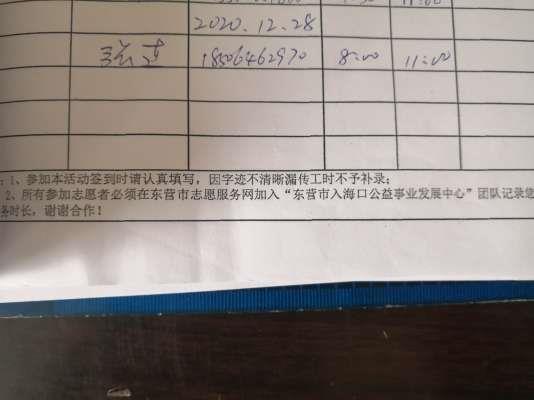 2020.12.28
张莲 18506462970 8:00 11:00
:1、参加本活动签到时请认真填写，因字迹不清晰漏传工时不予补录；
2、所有参加志愿者必须在东营市志愿服务网加入“东营市入海口公益事业发展中心”团队记录您
务时长，谢谢合作！